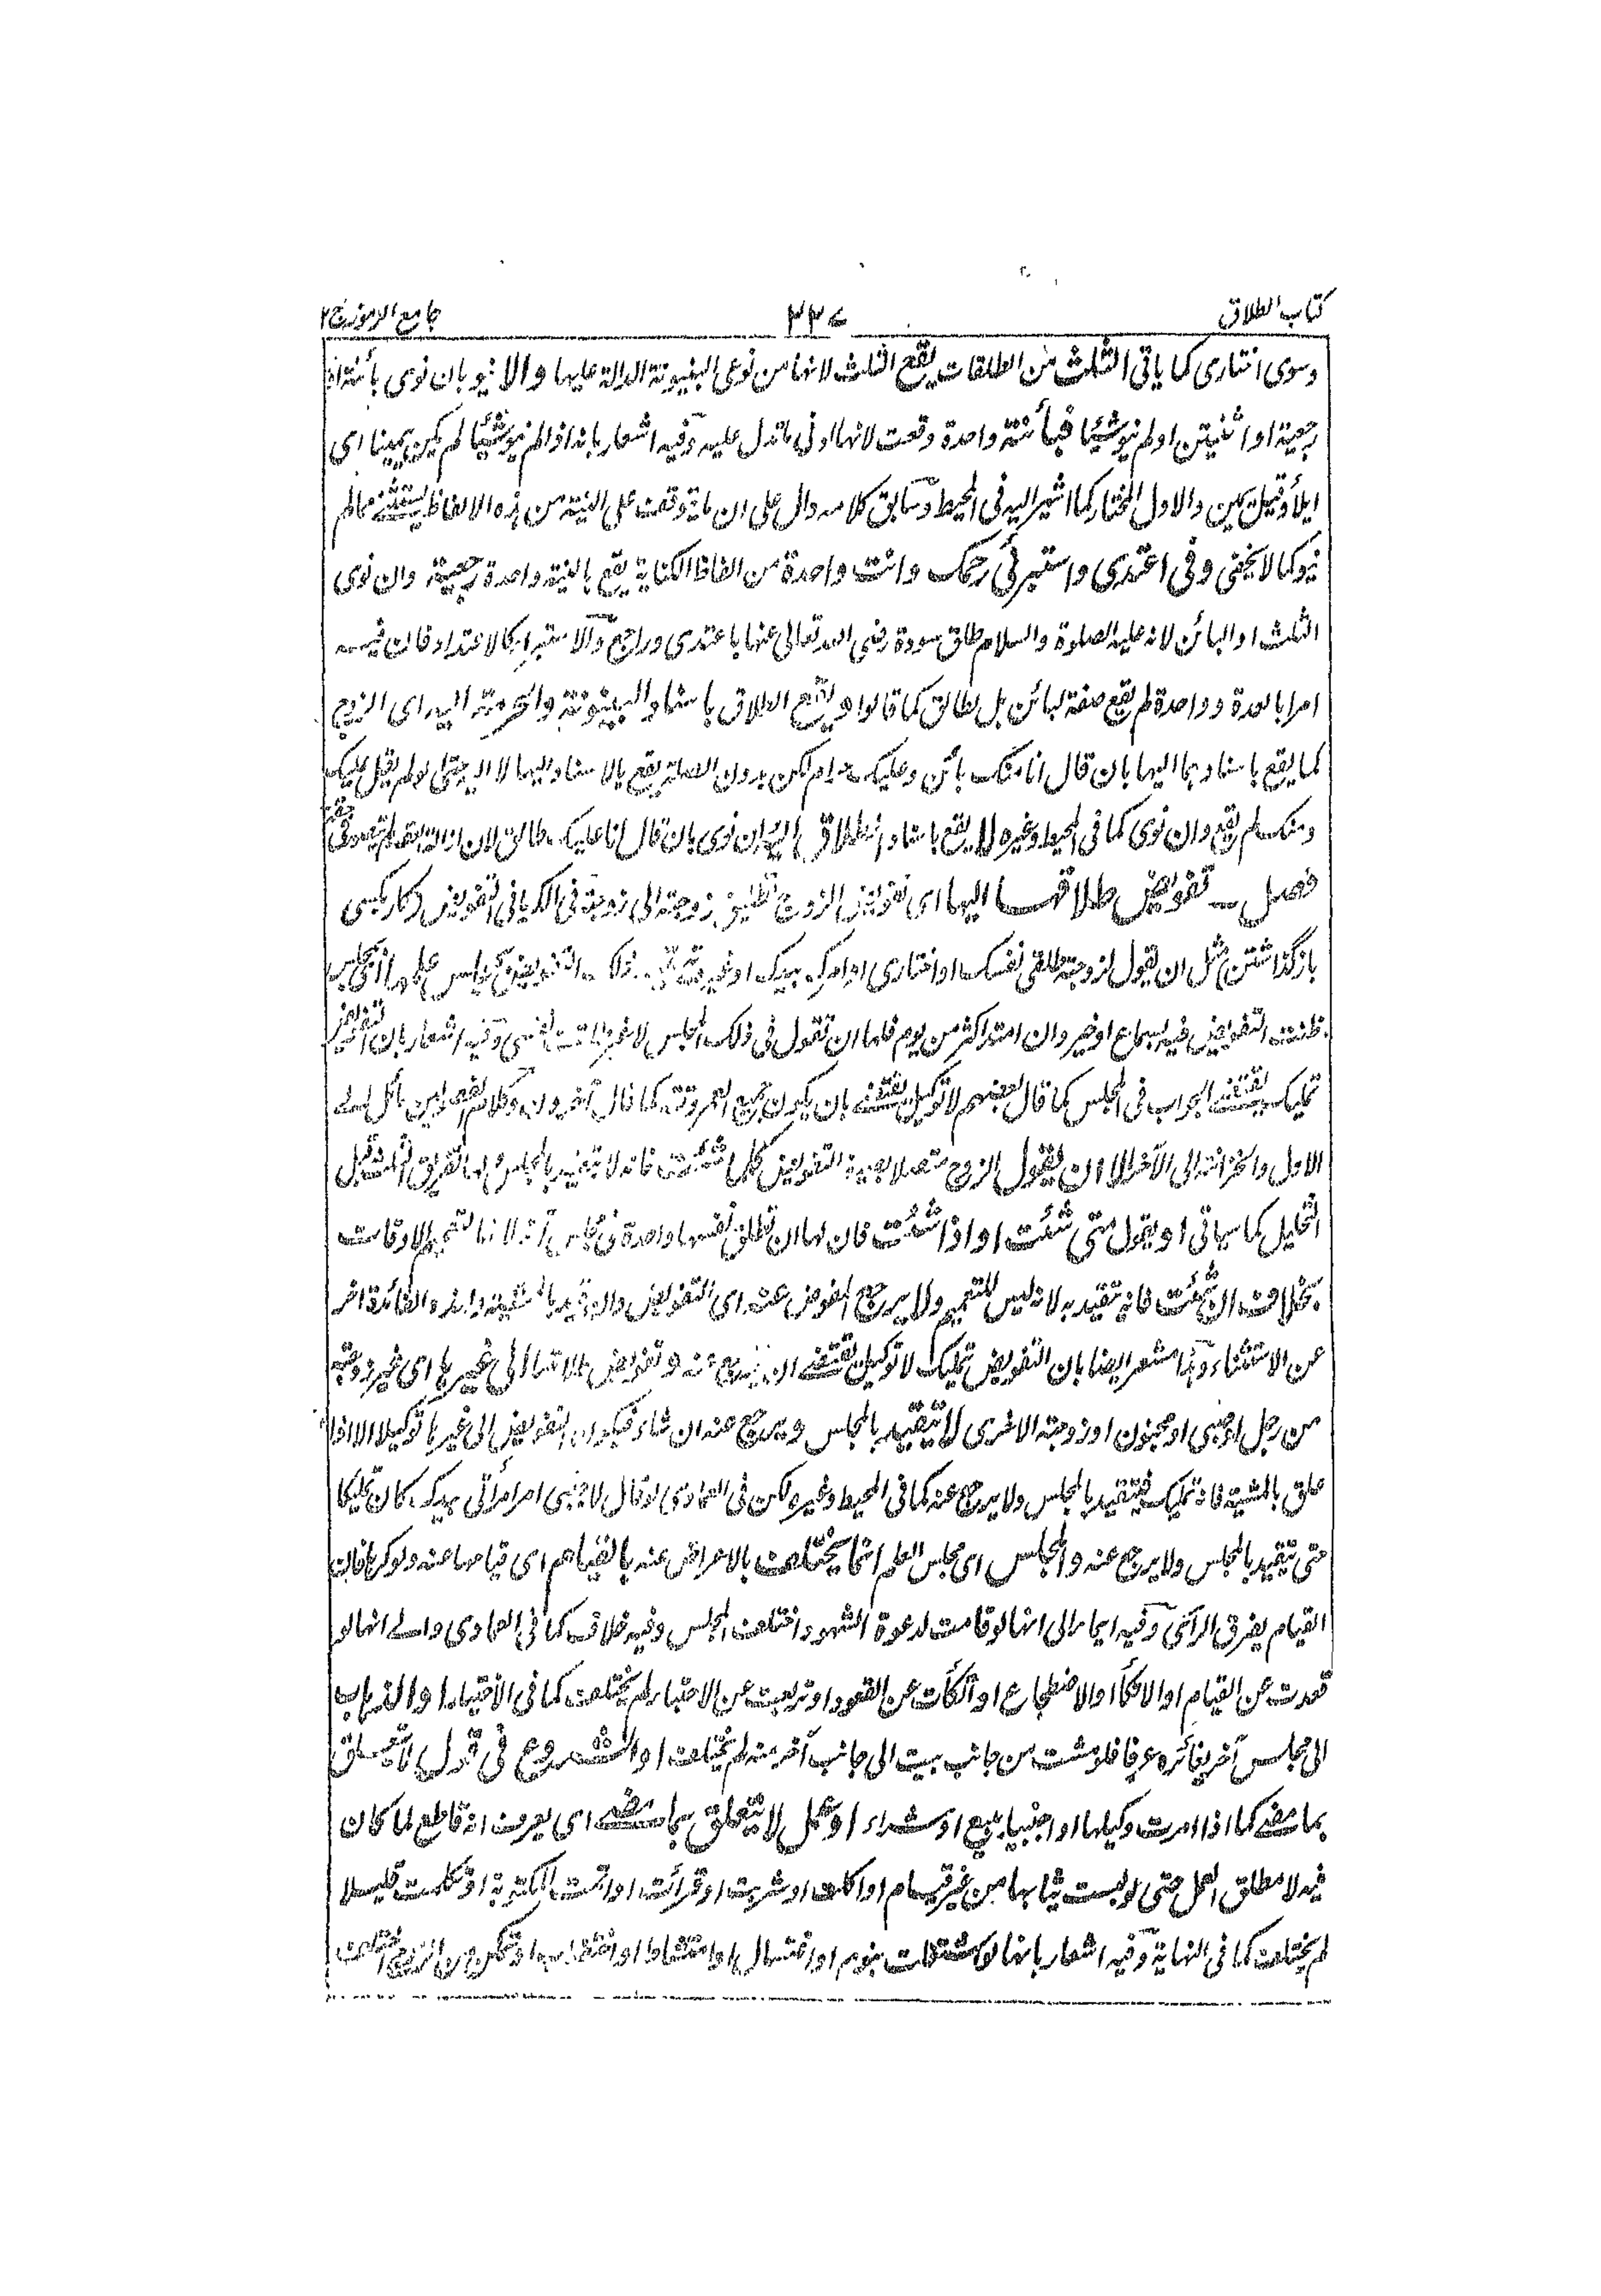 كتاب الطلاق
٣٣٧
جامع الرموز ج٢
وسوى اختارى كما ياتى الثلث من الطلقات يقع الثلث لانها من نوعى البينونة الدالة عليها والا ينو بان نوى بائنة او
رجعية او اثنتين او لم ينو شيئا فبائنة واحدة وقعت لانها ادنى ما تدل عليه وفيه اشعار بانه اذا لم ينو شيئا لم يكن يمينا اى
ايلاء وقيل يمين والاول المختار كما اشير اليه فى المحيط وسابق كلامه دال على ان ما يتوقف على النية من هذه الالفاظ يستثنى ما لم
ينو كما لا يخفى وفى اعتدى واستبرئى رحمك وانت واحدة من الفاظ الكناية يقع بالنية واحدة رجعية وان نوى
الثلث او البائن لانه عليه الصلوة والسلام طلق سودة رضى الله تعالى عنها باعتدى وراجع والاستبراء كالاعتداد فان فيه
امرا بالعدة وواحدة لم يقع صفة لبائن بل لطالق كما قالوا ويقع الطلاق باسناد البينونة والحرمة اليه اى الزوج
كما يقع باسنادهما اليها بان قال انا منك بائن وعليك حرام لكن بدون الصلة يقع بالاسناد اليها لا اليه حتى لو لم يقل عليك
ومنك لم يقع وان نوى كما فى المحيط وغيره لا يقع باسناد الطلاق اليه ان نوى بان قال انا عليك طالق لان ازالة القيد لم تتصور فى حقه
فصل تفويض طلاقها اليها اى تفويض الزوج تطليق زوجته الى زوجته فى الكرمانى التفويض كار بكسى
بازگذاشتن مثل ان يقول لزوجته طلقى نفسك او اختارى او امرك بيدك او غيره يتقيد ذلك التفويض بمجلس علمها اى مجلس
ظننت التفويض فيه بسماع او خبر وان امتد اكثر من يوم فلها ان تقول فى ذلك المجلس لا غير نفسى وفيه اشعار بان التفويض
تمليك يقتضى الجواب فى المجلس كما قال بعضهم لا توكيل يقتضى بان يكون جميع العمر وقته كما قال آخرون وكلام مائل الى
الاول والخزانة الى الآخر الا ان يقول الزوج متصلا بصيغة التفويض كلما شئت فانه لا يتقيد بالمجلس ولها تفريق الثلث قبل
التحليل كما سياتى او يقول متى شئت او اذا شئت فان لها ان تطلق نفسها واحدة فى مجلس آخر لانها لتعميم الاوقات
بخلاف ان شئت فانه يتقيد به لانه ليس للتعميم ولا يرجع المفوض عنه اى التفويض وان قيد بالمشية ولهذه الفائدة اخر
عن الاستثناء وهذا مشعر ايضا بان التفويض تمليك لا توكيل يقتضى ان يرجع عنه وتفويض طلاقها الى غيرها اى غير زوجته
من رجل او صبى او مجنون او زوجته الاخرى لا يتقيد بالمجلس ويرجع عنه ان شاء فيكون التفويض الى غيرها توكيلا الا اذا
علق بالمشية فانه تمليك فيتقيد بالمجلس ولا يرجع عنه كما فى المحيط وغيره لكن فى العمادى لو قال لاجنبى امر امرأتى بيدك كان تمليكا
حتى يتقيد بالمجلس ولا يرجع عنه والمجلس اى مجلس العلم انما يختلف بالاعراض عنه بالقيام اى قيامها عنه ولو كرها فان
القيام يفرق الرأى وفيه ايماء الى انها لو قامت لدعوة الشهود اختلف المجلس وفيه خلاف كما فى العمادى والى انها لو
قعدت عن القيام او الاتكاء او الاضطجاع او اتكأت عن القعود او تربعت عن الاحتباء لم يختلف كما فى الاختيار او الذهاب
الى مجلس آخر يغائره عرفا فلو مشت من جانب بيت الى جانب آخر منه لم يختلف او الشروع فى قول لا يتعلق
بما مضى كما اذا امرت وكيلها او اجنبيا ببيع او شراء او عمل لا يتعلق بما مضى اى يعرف انه قاطع لما كان
فيه لا مطلق العمل حتى لو لبست ثيابها من غير قيام او اكلت او شربت او قرأت او اتمت المكتوبة او تكلمت قليلا
لم يختلف كما فى النهاية وفيه اشعار بانها لو اشتغلت بنوم او اغتسال او امتشاط او اختضاب او تمكن من الزوج اختلف